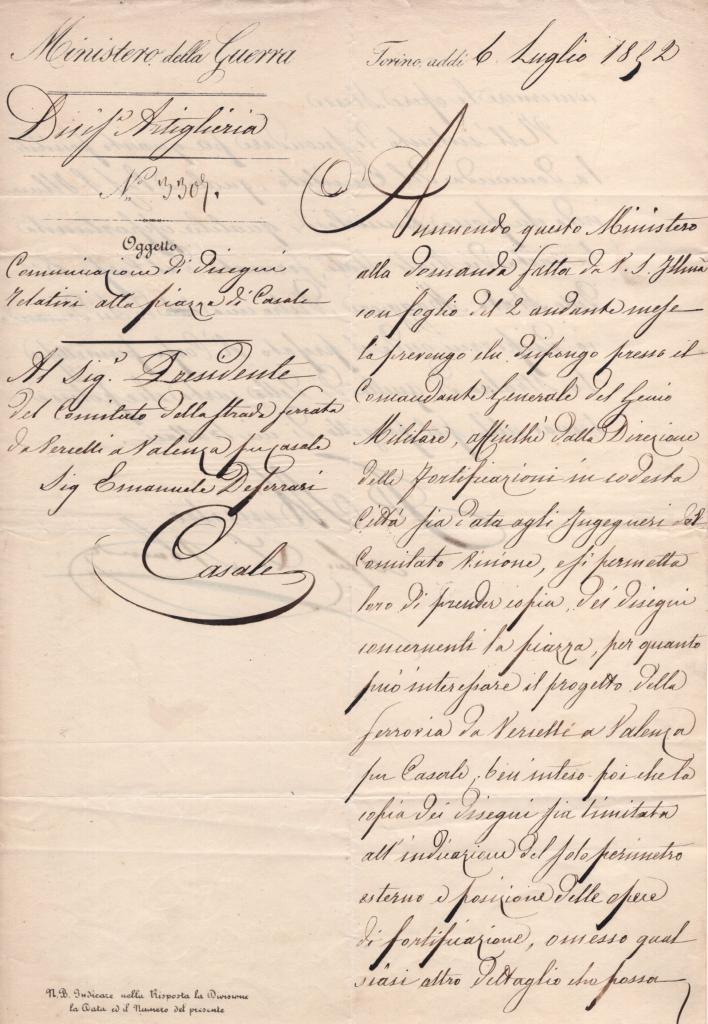 Ministero della Guerra
Divis.e Artiglieria
N.o 3307.
Oggetto
Comunicazione di disegni
relativi alla piazza di Casale
Al Sig.r Presidente
del Comitato della strada ferrata
da Vercelli a Valenza per Casale
Sig Emanuele Deferrari
Casale
N.B. Indicare nella Risposta la Divisione
la Data ed il Numero del presente
Torino, addi 6 Luglio 1852
Annuendo questo Ministero
alla domanda fatta da V. S. Illma
con foglio del 2 andante mese
la prevengo che dispongo presso il
Comandante Generale del Genio
Militare, affinchè dalla Direzione
delle fortificazioni in codesta
Città sia data agli Ingegneri del
Comitato visione, e si permetta
loro di prender copia, dei disegni
concernenti la piazza, per quanto
può interessare il progetto della
ferrovia da Vercelli a Valenza
per Casale, ben inteso poi che la
copia dei disegni sia limitata
all'indicazione del solo perimetro
esterno e posizione delle opere
di fortificazione, omesso qual
siasi altro dettaglio che possa